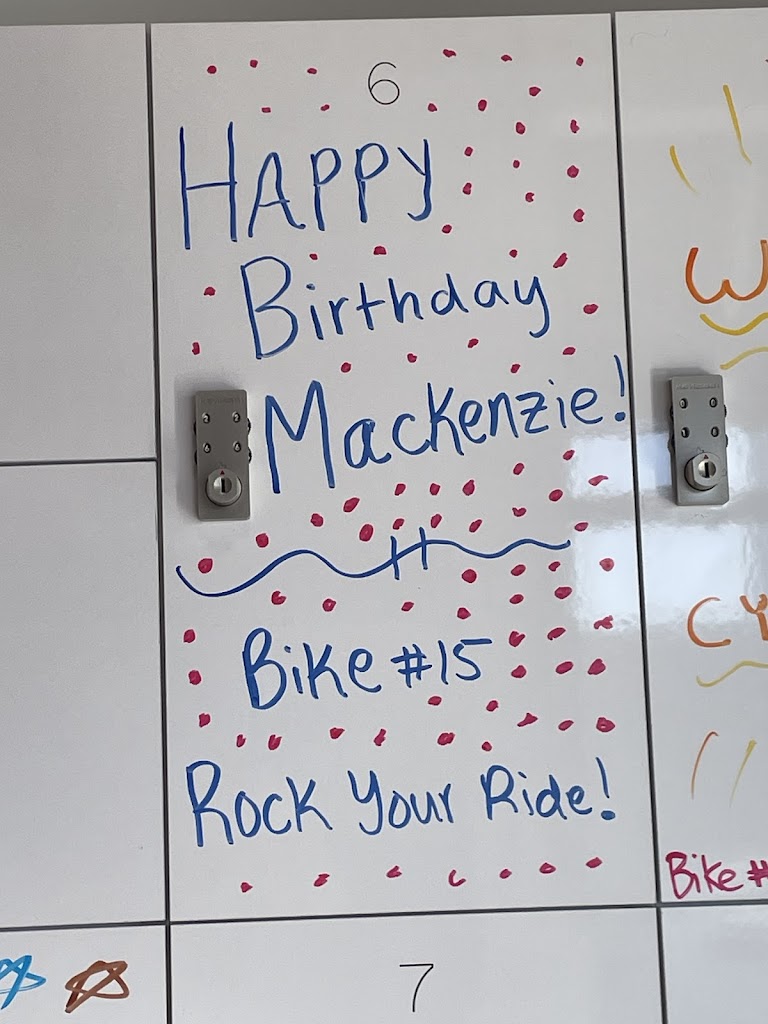 6
HAPPY
Birthday
Mackenzie!
Bike #15
Rock Your Ride!
7
Bike #